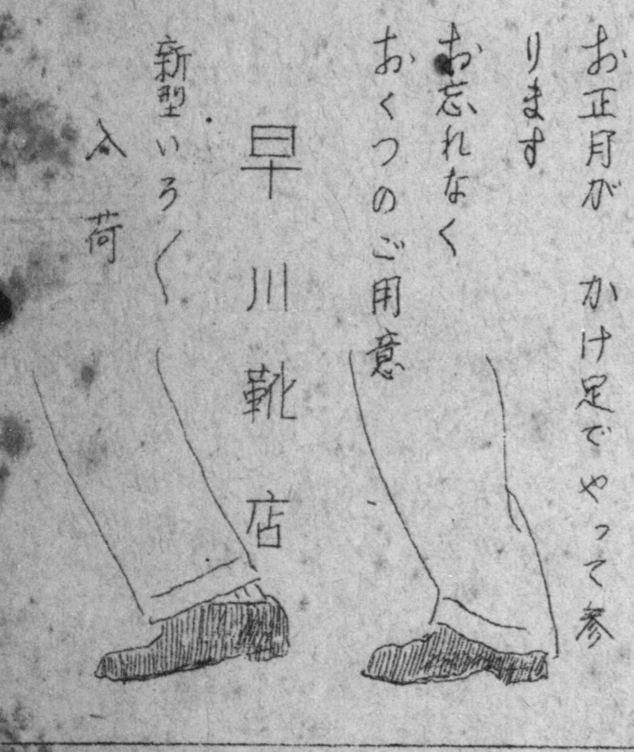 お正月が かけ足でやって参
ります
お忘れなく
おくつのご用意
早川靴店
新型いろ〱
入荷